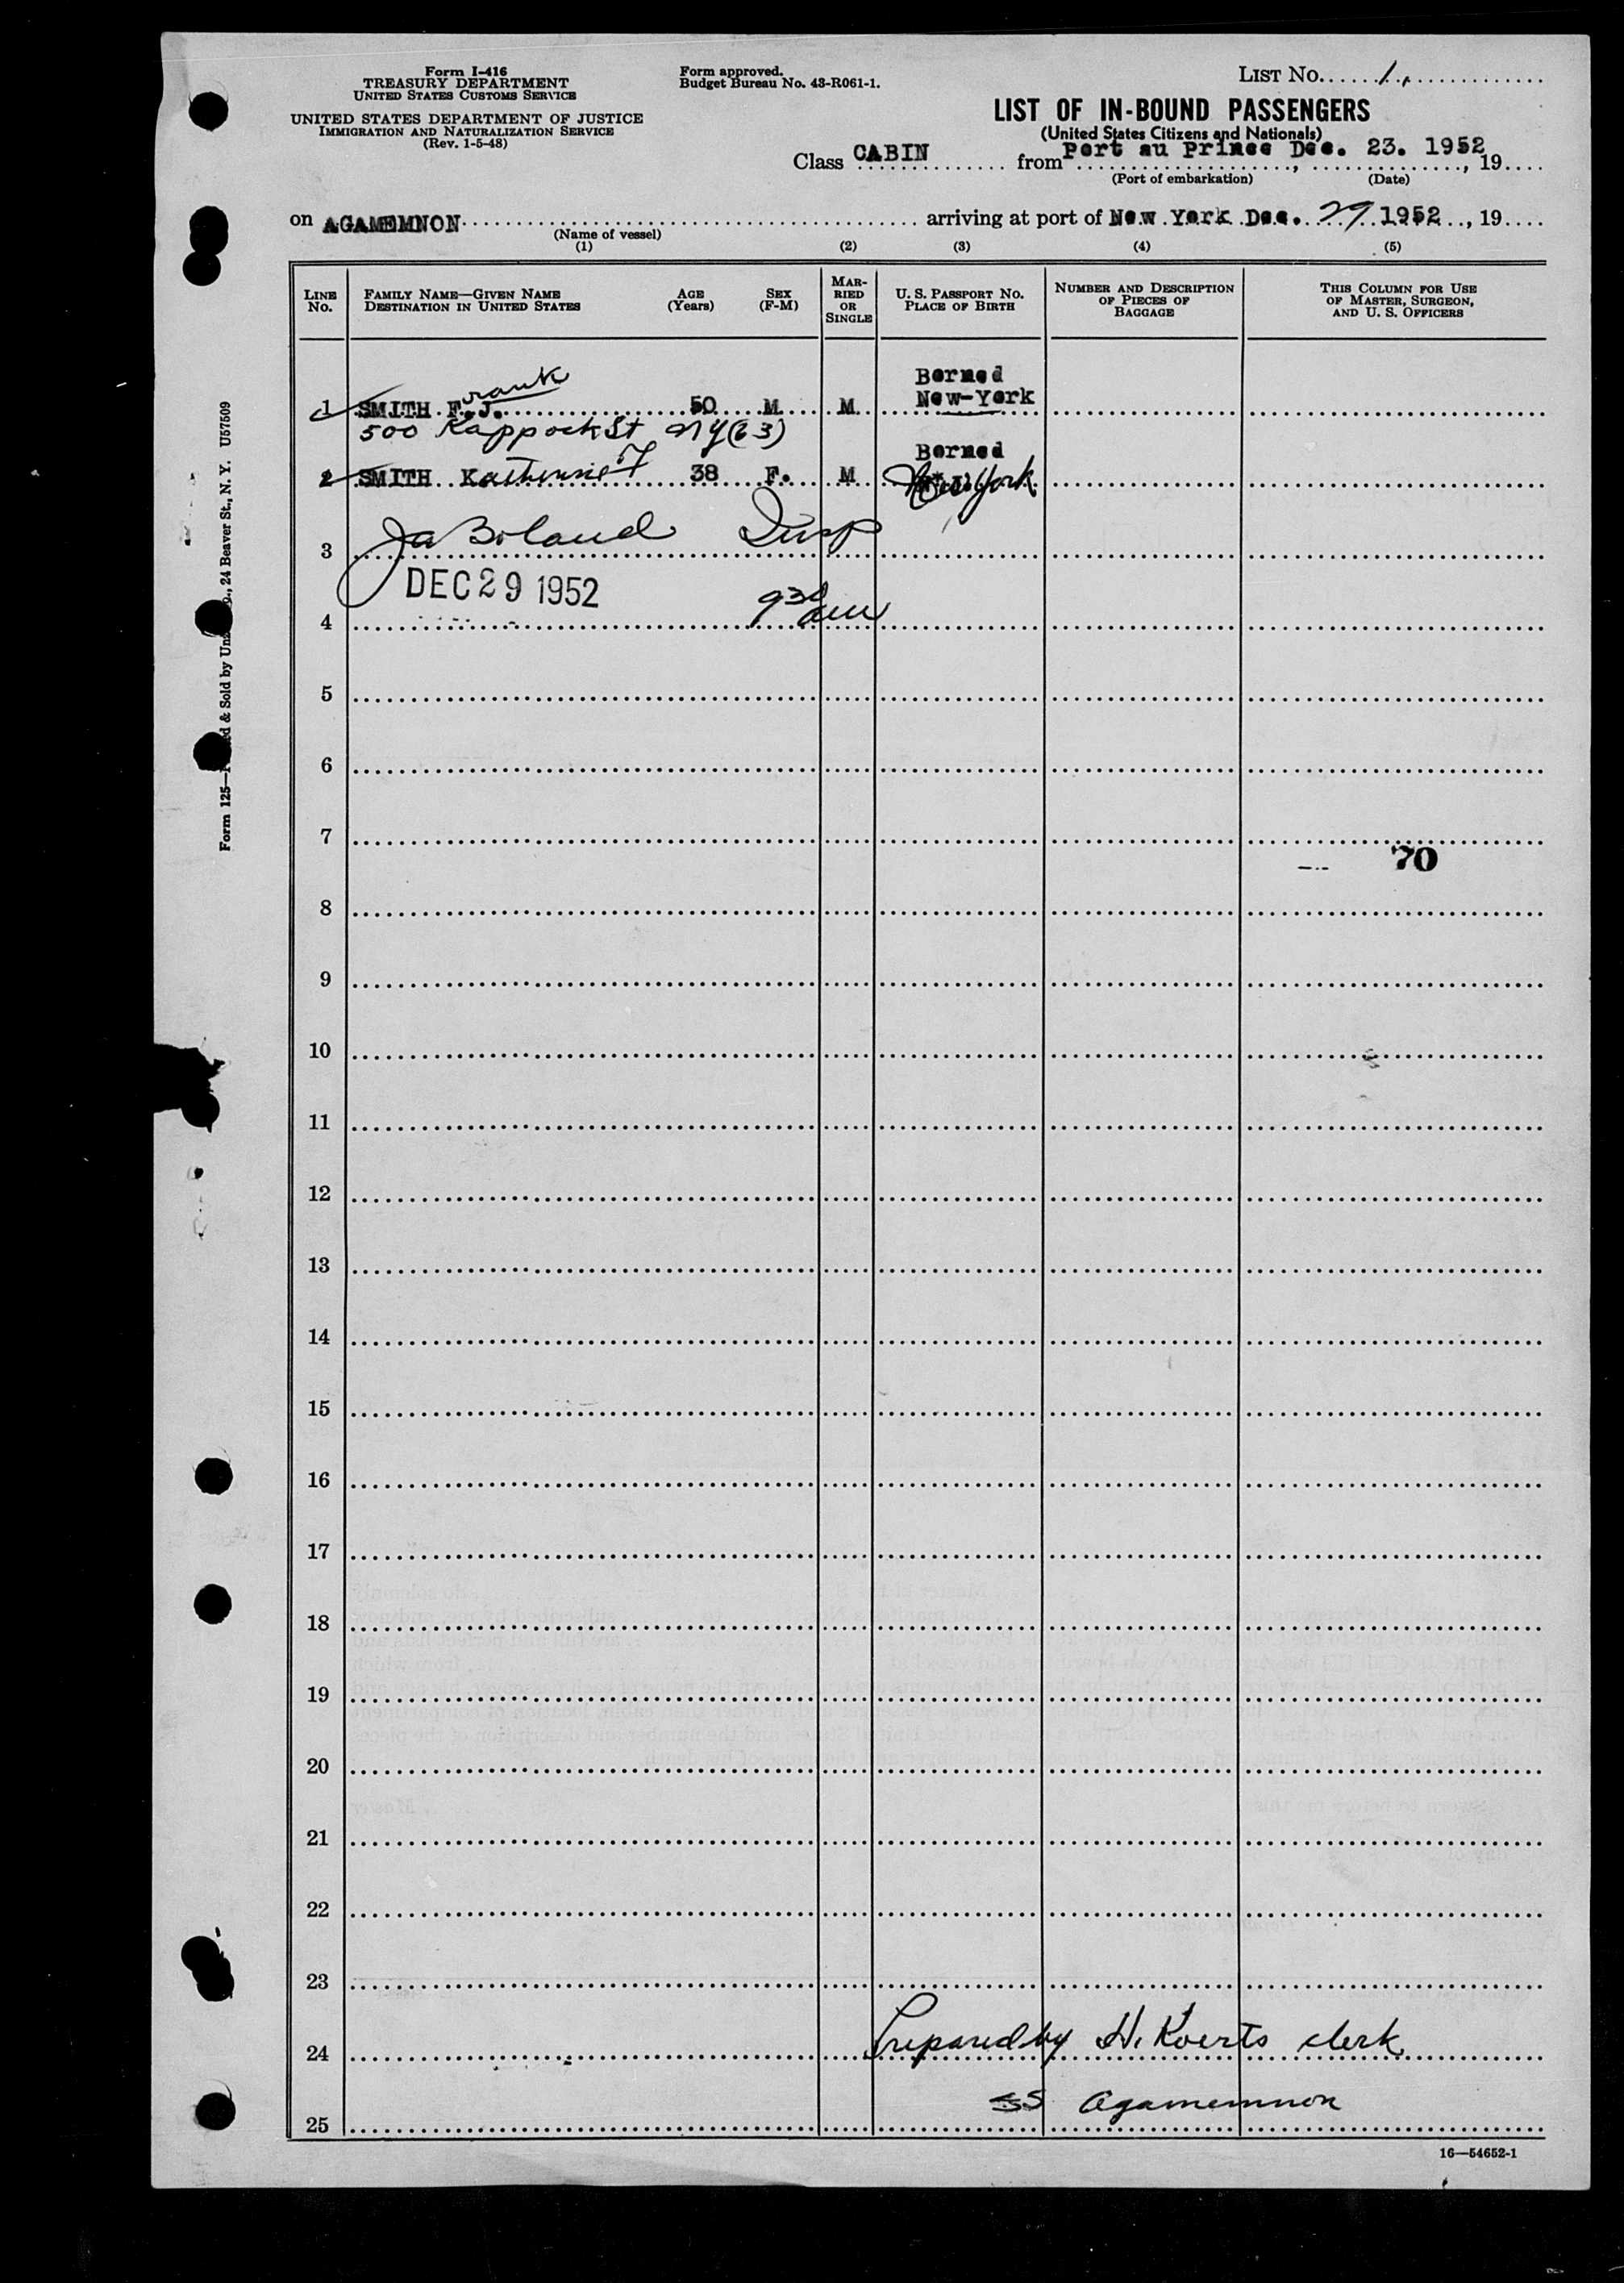 Form I-416
TREASURY DEPARTMENT
UNITED STATES CUSTOMS SERVICE
UNITED STATES DEPARTMENT OF JUSTICE
IMMIGRATION AND NATURALIZATION SERVICE
(Rev. 1-5-48)
Form approved.
Budget Bureau No. 43-R061-1.
LIST NO. 1.
LIST OF IN-BOUND PASSENGERS
(United States Citizens and Nationals)
Class CABIN from Port au Prince Dec. 23. 1952, 19
(Port of embarkation) (Date)
on AGAMEMNON arriving at port of New York Dec. 29 1952, 19
(Name of vessel)
(1) (2) (3) (4) (5)
LINE NO.
FAMILY NAME—GIVEN NAME
DESTINATION IN UNITED STATES
AGE (Years)
SEX (F-M)
MARRIED OR SINGLE
U. S. PASSPORT NO.
PLACE OF BIRTH
NUMBER AND DESCRIPTION OF PIECES OF BAGGAGE
THIS COLUMN FOR USE OF MASTER, SURGEON, AND U. S. OFFICERS
rank
Borned
1 SMITH F.J. 50 M M New-York
500 Kappock St NY (63)
Borned
2 SMITH Katherine F 38 F. M New York
3 Ja Boland Insp
DEC 29 1952
4 930 am
5
6
7
70
8
9
10
11
12
13
14
15
16
17
18
19
20
21
22
23
24 Prepared by H. Koerts clerk
SS Agamemnon
25
16—54652-1
Form 125— & Sold by , 24 Beaver St., N. Y. U57509